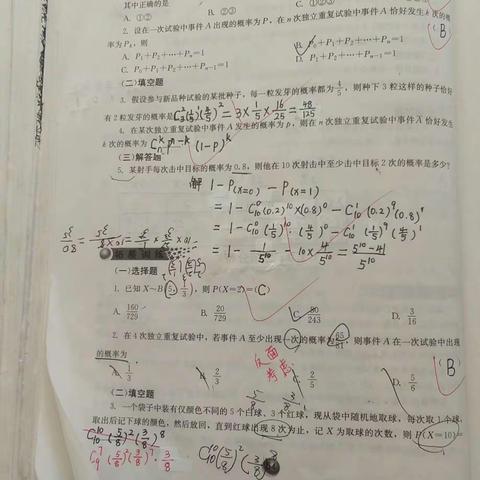 其中正确的是
A. ①② B. ②③
2. 设在一次试验中事件 A 出现的概率为 P，在 n 次独立重复试验中事件 A 恰好发生 k 次的概
率为 Pₖ，则 (B)
A. P₁+P₂+…+Pₙ=1 B. P₀+P₁+P₂+…+Pₙ=1
C. P₀+P₁+P₂+…+Pₙ=1 D. P₁+P₂+…+Pₙ₋₁=1
(二)填空题
3. 假设参与新品种试验的某批种子，每一粒发芽的概率都为 4/5，则种下 3 粒这样的种子恰好
有 2 粒发芽的概率是 C₃²(1/5)¹(4/5)² = 3×1/5×16/25 = 48/125
4. 在某次独立重复试验中事件 A 发生的概率为 p，则在 n 次独立重复试验中事件 A 恰好发生
k 次的概率为
(三)解答题
5. 某射手每次击中目标的概率为 0.8，则他在 10 次射击中至少击中目标 2 次的概率是多少?
解 1-P(x=0) - P(x=1)
= 1 - C₁₀⁰(0.2)¹⁰×(0.8)⁰ - C₁₀¹(0.2)⁹(0.8)¹
= 1 - C₁₀⁰(1/5)¹⁰·(4/5)⁰ - C₁₀¹(1/5)⁹(4/5)¹
= 1 - 1/5¹⁰ - 10×4/5¹⁰ = (5¹⁰-41)/5¹⁰
拓展训练
(一)选择题
1. 已知 X~B(5, 1/3)，则 P(X=2)=(C)
A. 160/729 B. 20/729 C. 80/243 D. 3/16
2. 在 4 次独立重复试验中，若事件 A 至少出现一次的概率为 65/81，则事件 A 在一次试验中出现
的概率为 (B)
A. 1/3 C. 2/5 D. 5/6
反面考虑
(二)填空题
3. 一个袋子中装有仅颜色不同的 5 个白球、3 个红球，现从袋中随机地取球，每次取 1 个球，
取出后记下球的颜色，然后放回，直到红球出现 8 次为止，记 X 为取球的次数，则 P(X=10)=
C₁₀¹⁰(5/8)²(3/8)⁸
C₉⁷(5/8)²(3/8)⁷·3/8